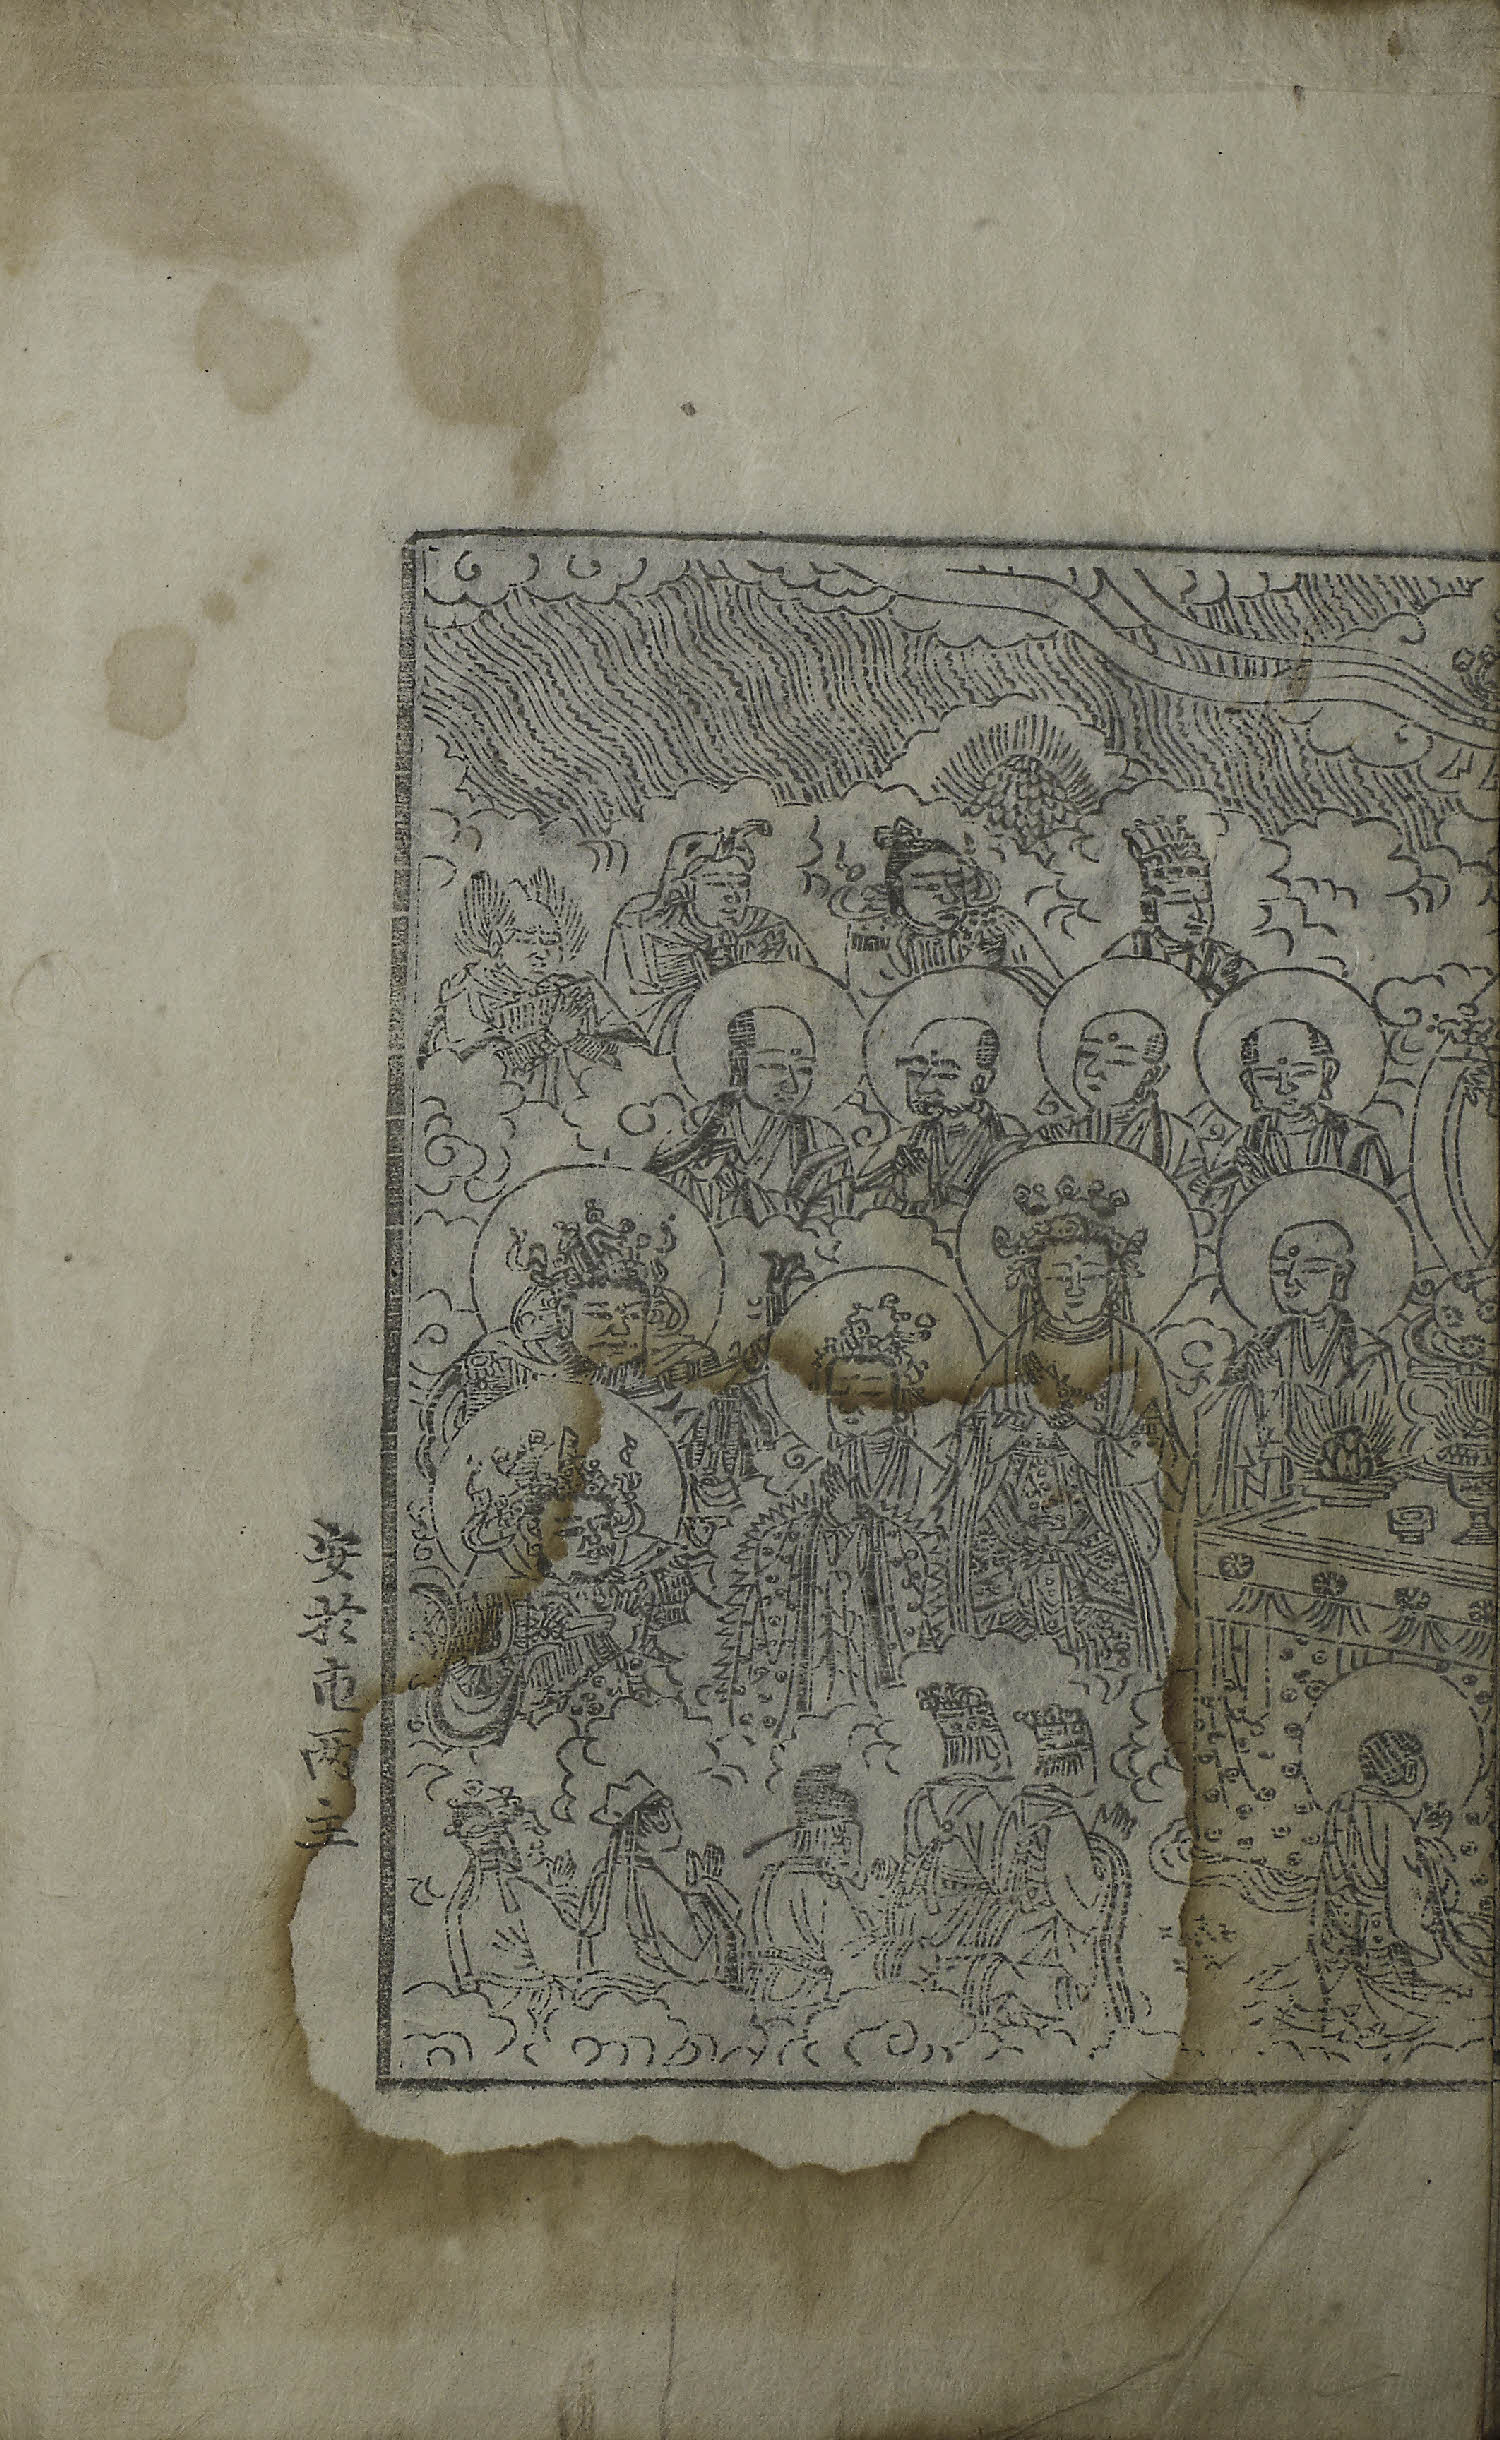 安於屯兩主